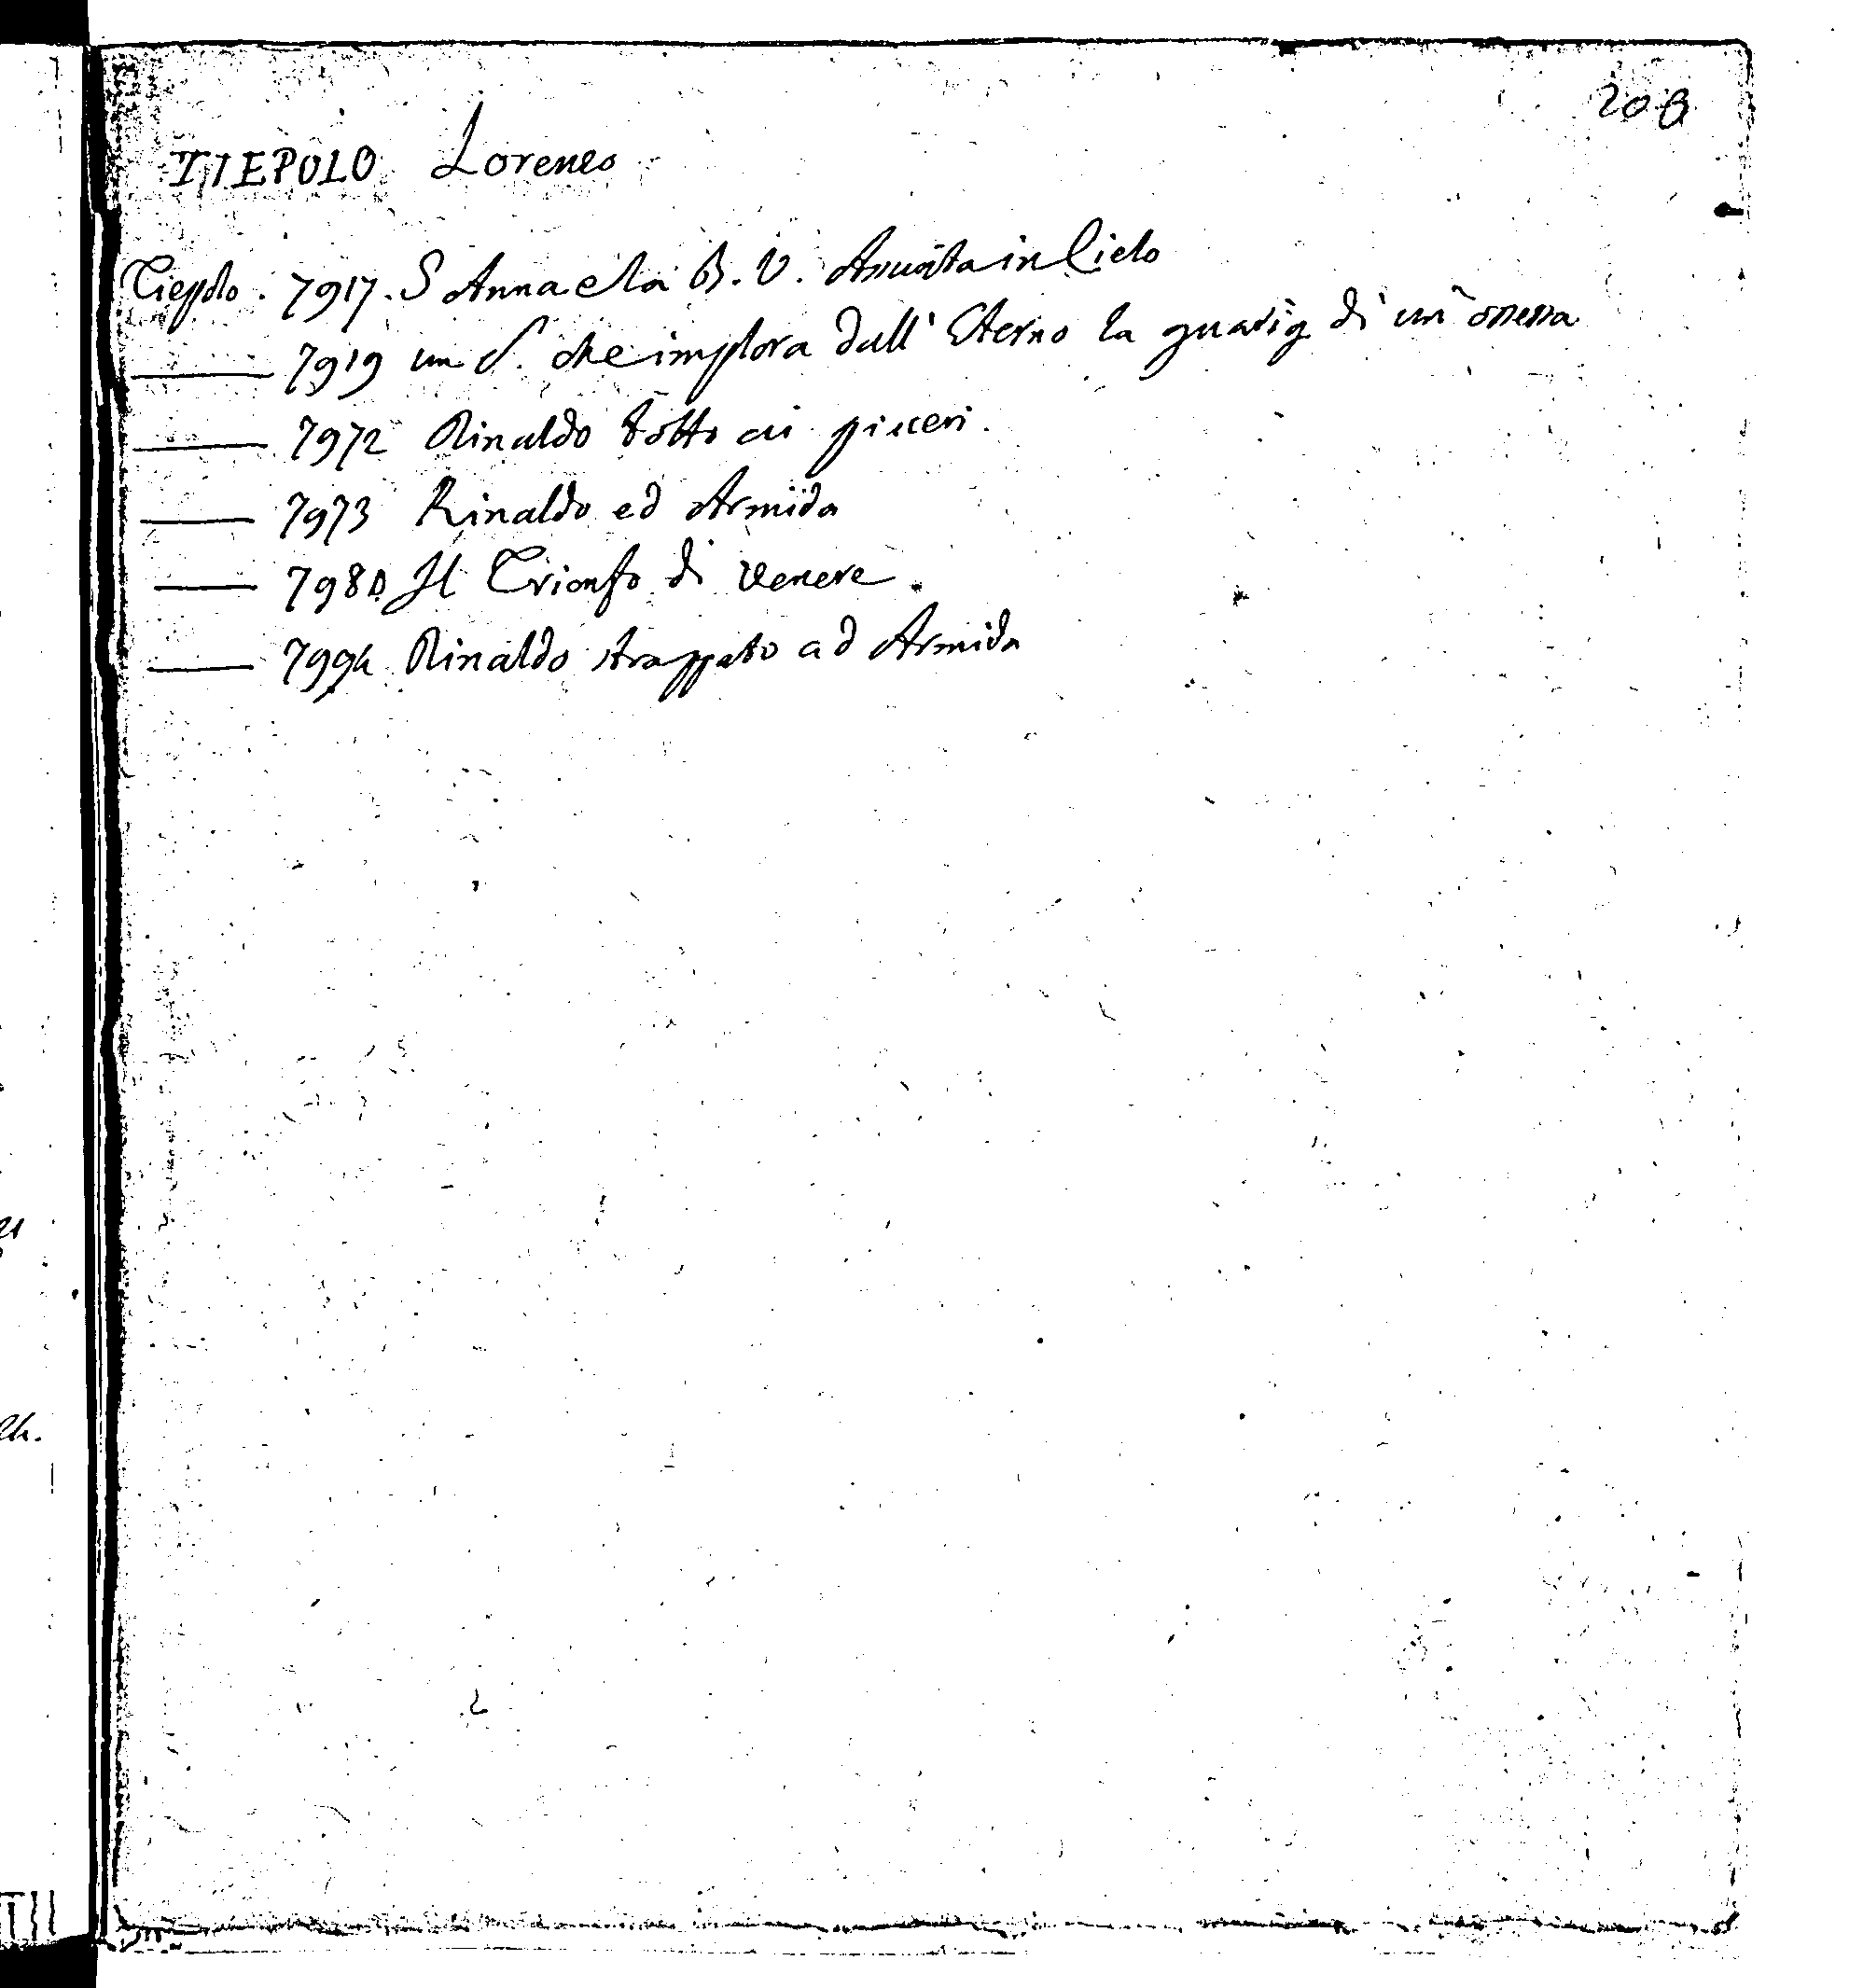 208
TIEPOLO Lorenzo
Tiepolo. 7917. S Anna e la B. V. Assunta in Cielo
7919 un S. che implora dall' Eterno la guarig di un ossessa
7972 Rinaldo tolto ai piaceri.
7973 Rinaldo ed Armida
7980 Il Trionfo di Venere.
7994 Rinaldo strappato ad Armida